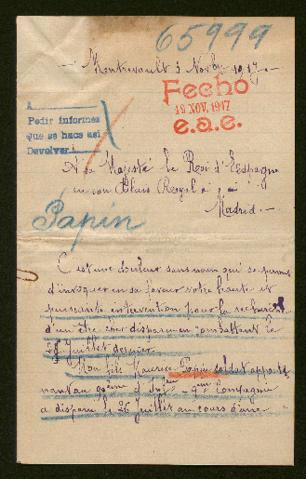 65999
Montrevault 3 Novbre 1917.
Fecho
12 NOV. 1917
e.a.e.
A
Pedir informes
que se hace así
Devolver
A Sa Majesté le Roi d'Espagne
en son Palais Royal à
Madrid.
Papin
C'est une douleur sans nom qui se permet
d'invoquer en sa faveur votre haute et
puissante intervention pour la recherche
d'un être cher disparu en combattant le
26 Juillet dernier
Mon fils Maurice Papin soldat apparte
nant au d'Infie Compagnie
a disparu le 26 Juillet au cours d'une